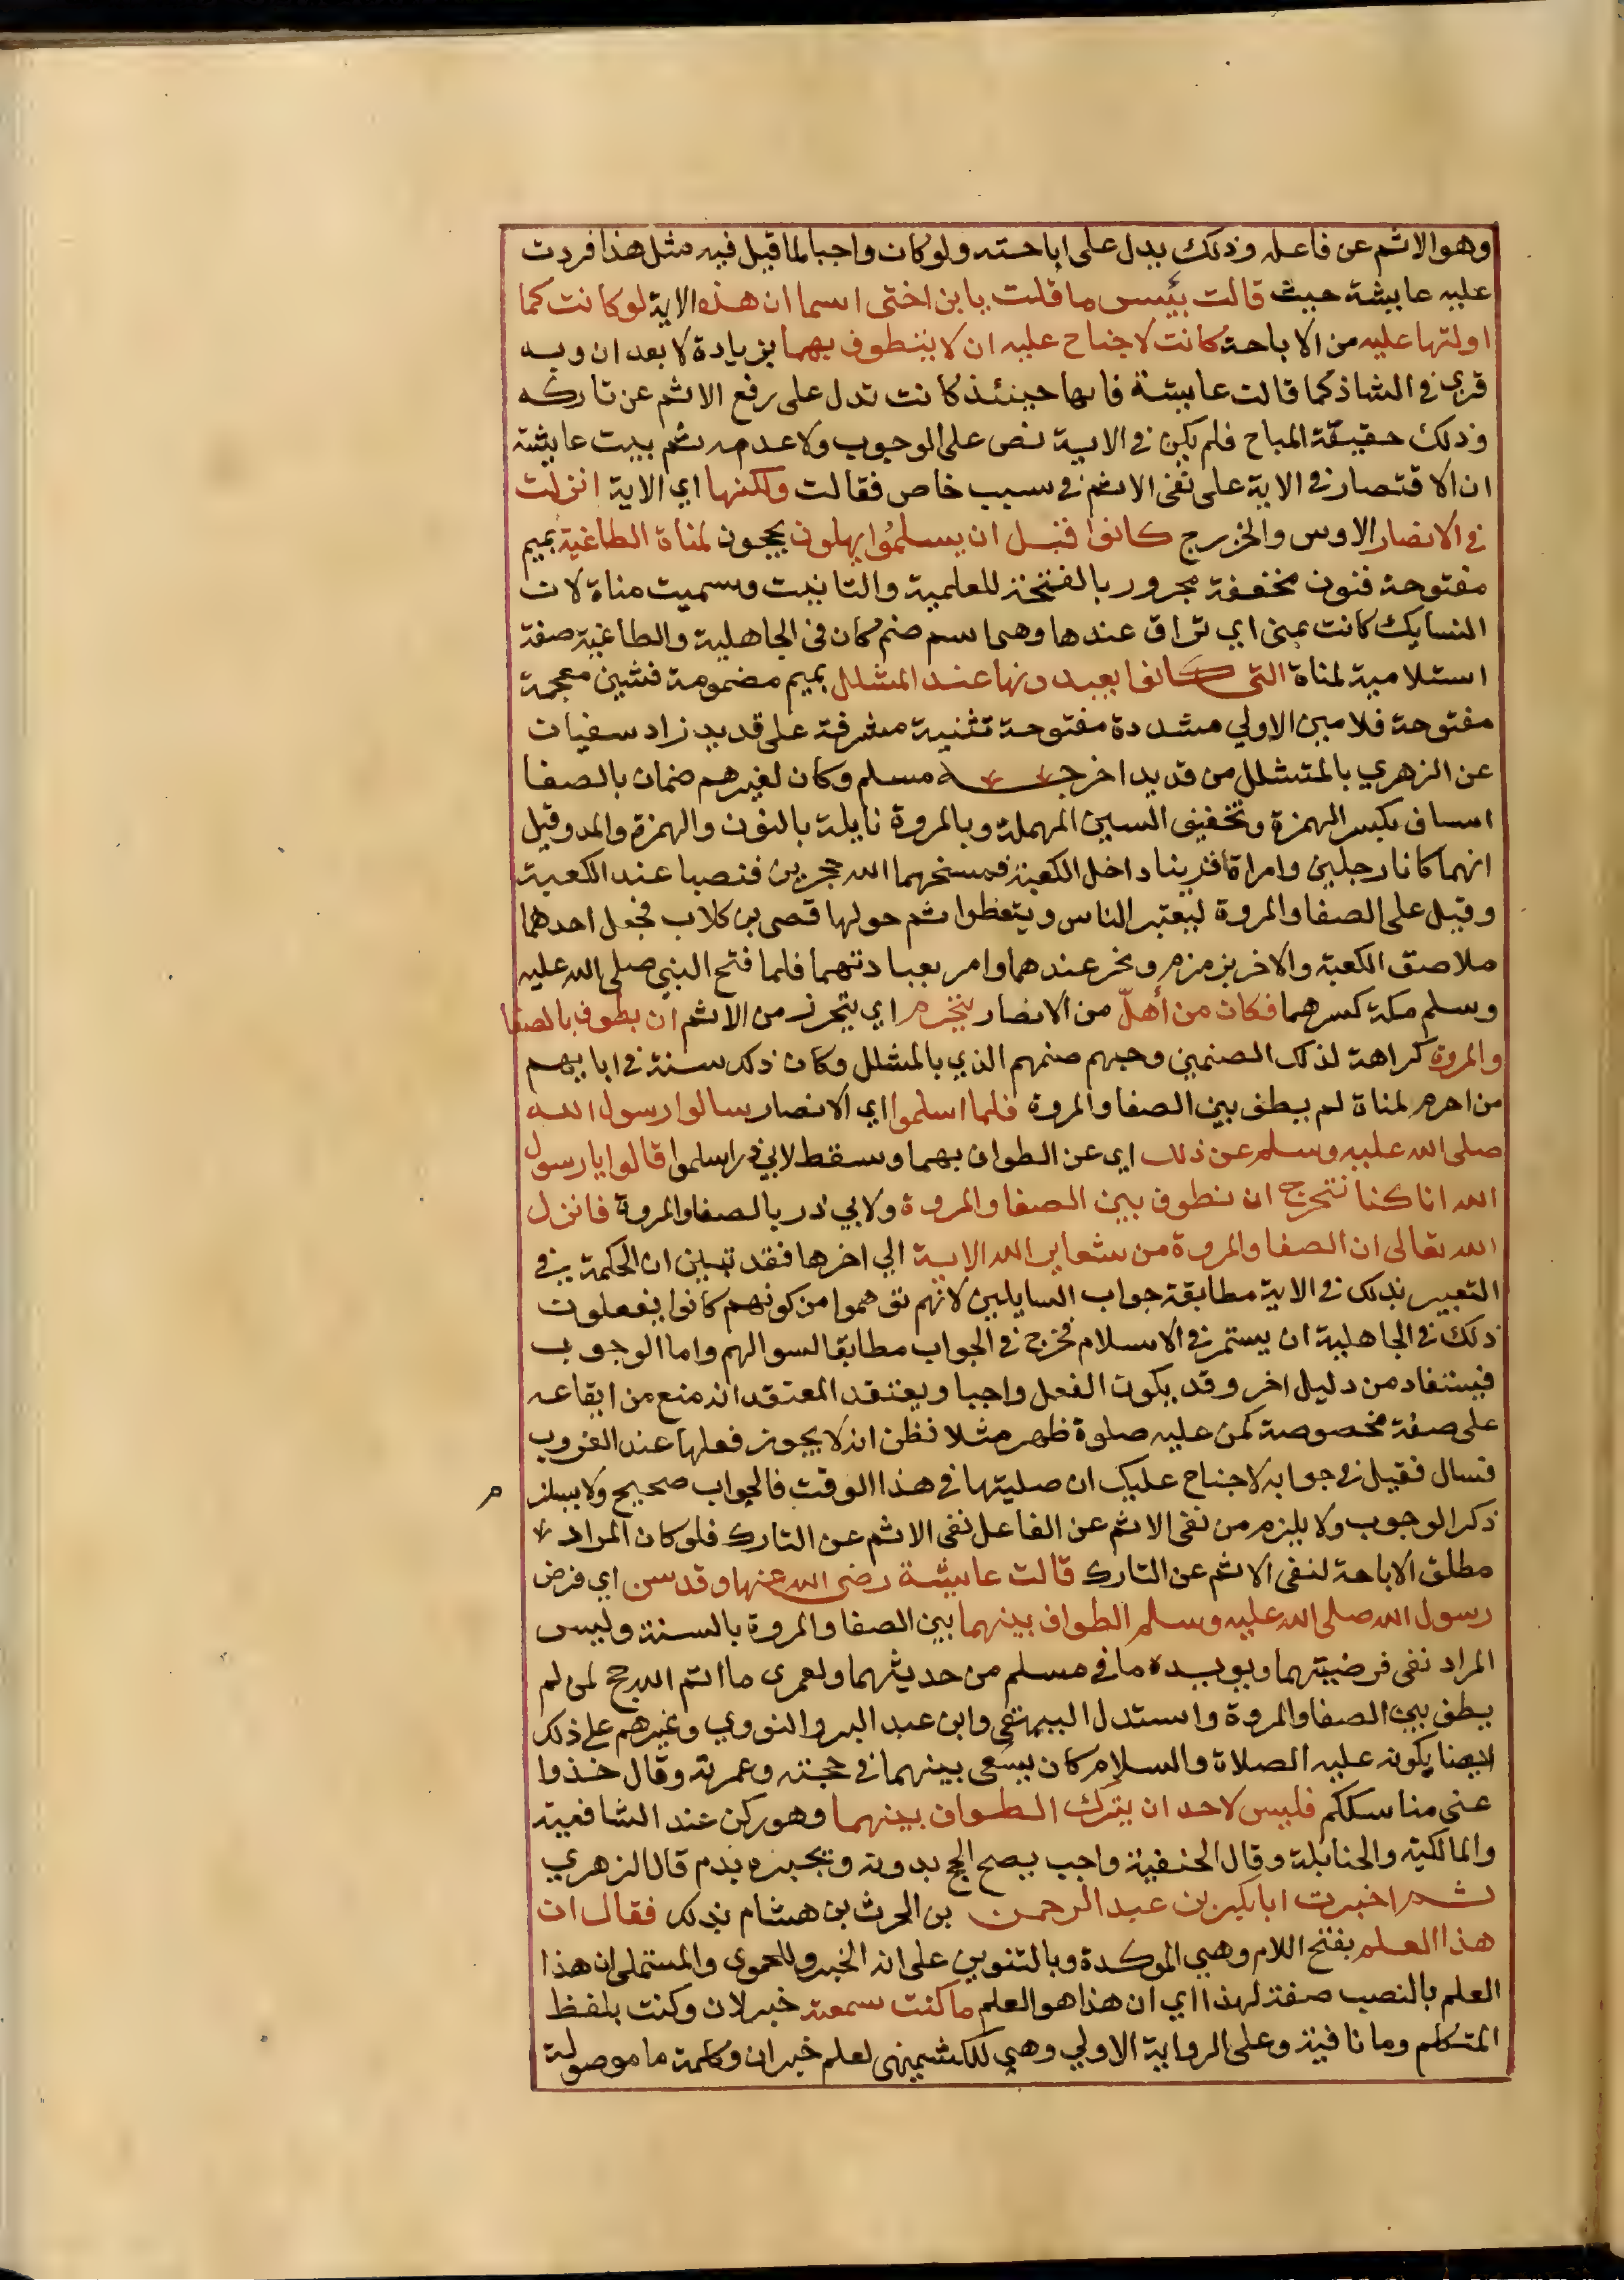 وهو الاثم عن فاعله وذلك يدل على اباحته ولو كان واجبا لما قيل فيه مثل هذا فردت
عليه عايشة حيث قالت بئيس ما قلت يا بن اختي اسما ان هذه الاية لو كانت كما
اولتها عليه من الاباحة كانت لا جناح عليه ان لا يتطوف بهما بزيادة لا بعد ان وبه
قري في الشاذ كما قالت عايشة فانها حينئذ كانت تدل على رفع الاثم عن تاركه
وذلك حقيقة المباح فلم يكن في الاية نص على الوجوب ولا عدمه ثم بينت عايشة
ان الاقتصار في الاية على نفى الاثم في سبب خاص فقالت ولكنها اي الاية انزلت
في الانصار الاوس والخزرج كانوا قبل ان يسلموا يهلون يحجون لمناة الطاغية بميم
مفتوحة فنون مخففة مجرور بالفتحة للعلمية والتانيث وسميت مناة لان
النسايك كانت تمنى اي تراق عندها وهى اسم صنم كان في الجاهلية والطاغية صفة
اسلامية لمناة التى كانوا يعبدونها عند المشلل بميم مضمومة فشين معجمة
مفتوحة فلامين الاولي مشددة مفتوحة تثنية مشرفة على قديد زاد سفيان
عن الزهري بالمتشلل من قديد اخرجه مسلم وكان لغيرهم صنمان بالصفا
اساف بكسر الهمزة وتخفيف السين المهملة وبالمروة نايلة بالنون والهمزة والمد وقيل
انهما كانا رجلين وامراة فزينا داخل الكعبة فمسخهما الله حجرين فنصبا عند الكعبة
وقيل على الصفا والمروة ليعتبر الناس ويتعظوا ثم حولها قصى بن كلاب فجعل احدهما
ملاصق الكعبة والاخر بزمزم ونحر عندهما وامر بعبادتهما فلما فتح النبي صلى الله عليه
وسلم مكة كسرهما فكان من أهلّ من الانصار يتحرم اي يتحرز من الاثم ان يطوف بالصفا
والمروة كراهة لذلك الصنمين وحبهم صنمهم الذي بالمشلل وكان ذلك سنة في ابايهم
من احرم لمناة لم يطف بين الصفا والمروة فلما اسلموا اي الانصار سالوا رسول الله
صلى الله عليه وسلم عن ذلك اي عن الطواف بهما وسقط لابي ذر اسلموا قالوا يا رسول
الله انا كنا نتحرج ان نطوف بين الصفا والمروة ولابي ذر بالصفا والمروة فانزل
الله تعالى ان الصفا والمروة من شعاير الله الاية الي اخرها فقد تبين ان الحكمة في
التعبير بذلك في الاية مطابقة جواب السايلين لانهم توهموا من كونهم كانوا يفعلون
ذلك في الجاهلية ان يستمر في الاسلام فخرج في الجواب مطابقا لسوالهم واما الوجوب
فيستفاد من دليل اخر وقد يكون الفعل واجبا ويعتقد المعتقد انه منع من ايقاعه
على صفة مخصوصة كمن عليه صلوة ظهر مثلا فظن انه لا يجوز فعلها عند الغروب
فسال فقيل في جوابه لا جناح عليك ان صليتها في هذا الوقت فالجواب صحيح ولا يستلز م
ذكر الوجوب ولا يلزم من نفى الاثم عن الفاعل نفى الاثم عن التارك فلو كان المراد
مطلق الاباحة لنفى الاثم عن التارك قالت عايشة رضى الله عنها وقد سن اي فرض
رسول الله صلى الله عليه وسلم الطواف بينهما بين الصفا والمروة بالسنة وليس
المراد نفى فرضيتهما ويويده ما في مسلم من حديثهما ولعمرى ما اتم الله حج لمن لم
يطف بين الصفا والمروة واستدل البيهقى وابن عبد البر والنووي وغيرهم على ذلك
ايضا بكونه عليه الصلاة والسلام كان يسعى بينهما في حجته وعمرته وقال خذوا
عنى مناسككم فليس لاحد ان يترك الطواف بينهما وهو ركن عند الشافعية
والمالكية والحنابلة وقال الحنفية واجب يصح الحج بدونه ويجبره بدم قال الزهري
ثم اخبرت ابا بكر بن عبد الرحمن بن الحرث بن هشام بذلك فقال ان
هذا العلم بفتح اللام وهي الموكدة وبالتنوين على انه الخبر وللحموى والمستملى ان هذا
العلم بالنصب صفة لهذا اي ان هذا هو العلم ما كنت سمعته خبر لان وكنت بلفظ
المتكلم وما نافية وعلى الرواية الاولي وهي للكشميهنى لعلم خبر ان وكلمة ما موصولة